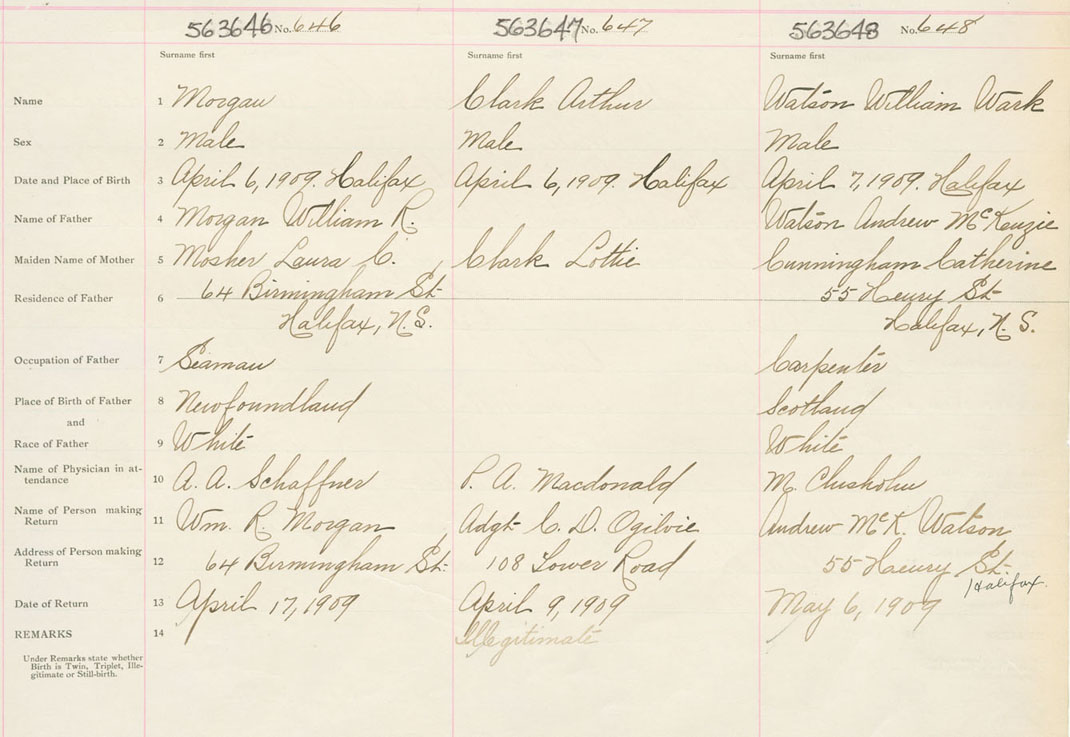 563646 No. 646 563647 No. 647 563648 No. 648
Surname first Surname first Surname first
Name 1 Morgan Clark Arthur Watson William Wark
Sex 2 Male Male Male
Date and Place of Birth 3 April 6, 1909. Halifax April 6, 1909. Halifax April 7, 1909. Halifax
Name of Father 4 Morgan William R. Watson Andrew McKenzie
Maiden Name of Mother 5 Mosher Laura C. Clark Lottie Cunningham Catherine
Residence of Father 6 64 Birmingham St. 55 Henry St.
Halifax, N.S. Halifax, N.S.
Occupation of Father 7 Seaman Carpenter
Place of Birth of Father 8 Newfoundland Scotland
and
Race of Father 9 White White
Name of Physician in at-
tendance 10 A. A. Schaffner P. A. Macdonald M. Chisholm
Name of Person making
Return 11 Wm. R. Morgan Adgt. C. D. Ogilvie Andrew McK. Watson
Address of Person making
Return 12 64 Birmingham St. 108 Tower Road 55 Henry St.
Halifax.
Date of Return 13 April 17, 1909 April 9, 1909 May 6, 1909
REMARKS 14 Illegitimate
Under Remarks state whether
Birth is Twin, Triplet, Ille-
gitimate or Still-birth.